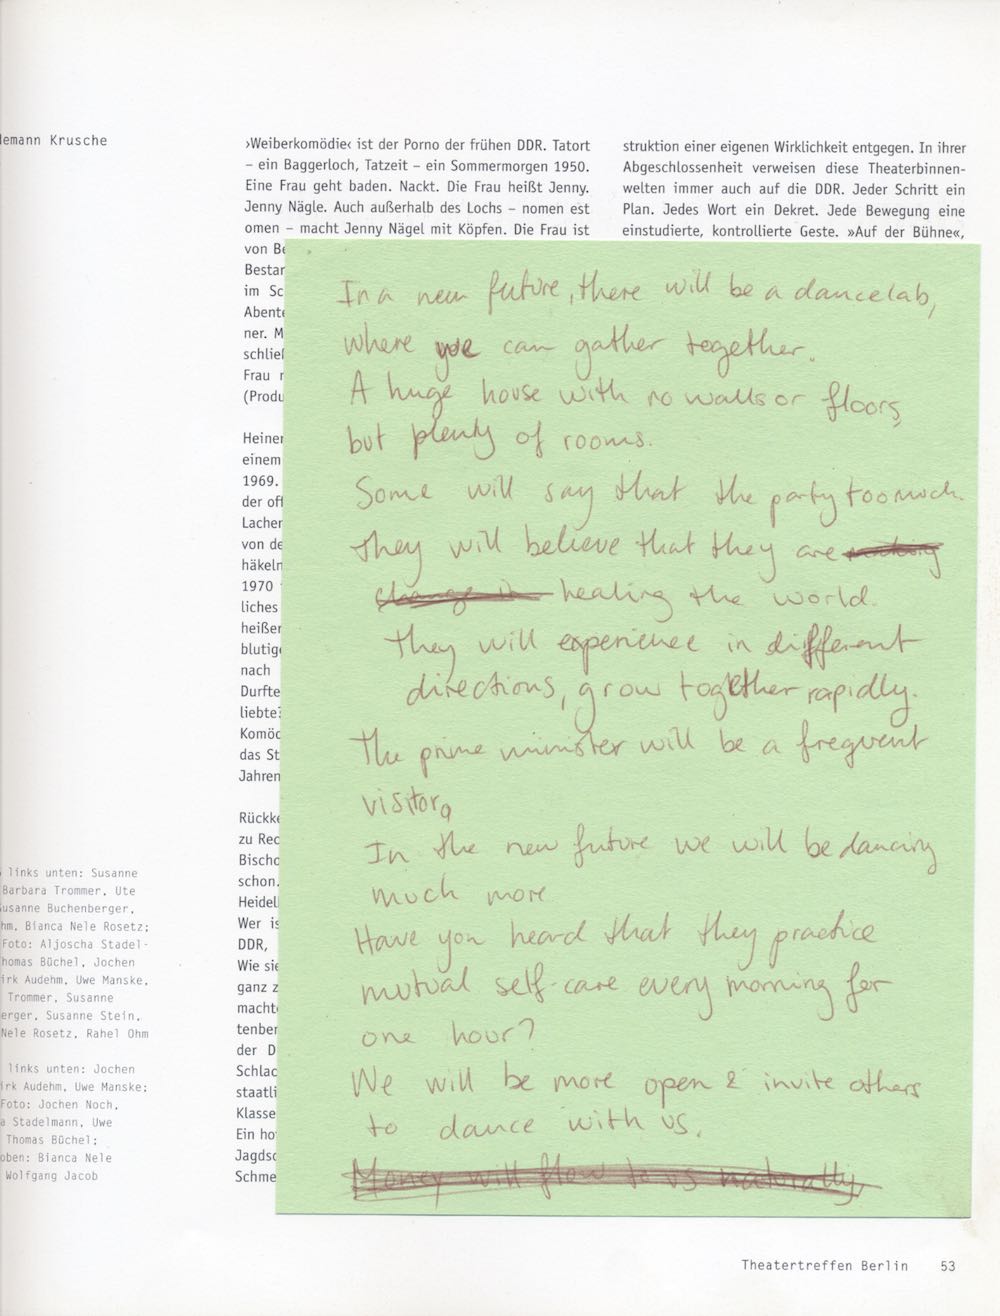 lemann Krusche
›Weiberkomödie‹ ist der Porno der frühen DDR. Tatort
– ein Baggerloch, Tatzeit – ein Sommermorgen 1950.
Eine Frau geht baden. Nackt. Die Frau heißt Jenny.
Jenny Nägle. Auch außerhalb des Lochs – nomen est
omen – macht Jenny Nägel mit Köpfen. Die Frau ist
von Be
Bestar
im Sc
Abente
ner. M
schließ
Frau r
(Produ
Heiner
einem
1969.
der off
Lacher
von de
häkeln
1970
liches
heißer
blutige
nach
Durfte
liebte?
Komöd
das St
Jahren
Rückke
zu Rec
Bischo
schon.
Heidel
Wer is
DDR,
Wie sie
ganz z
machte
tenber
der D
Schlac
staatli
Klasse
Ein ho
Jagdsc
Schme
struktion einer eigenen Wirklichkeit entgegen. In ihrer
Abgeschlossenheit verweisen diese Theaterbinnen-
welten immer auch auf die DDR. Jeder Schritt ein
Plan. Jedes Wort ein Dekret. Jede Bewegung eine
einstudierte, kontrollierte Geste. »Auf der Bühne«,
In a new future, there will be a dancelab,
where we can gather together.
A huge house with no walls or floors,
but plenty of rooms.
Some will say that the party too much.
They will believe that they are making
change in healing the world.
They will experience in different
directions, grow together rapidly.
The prime minister will be a frequent
visitor.
In the new future we will be dancing
much more
Have you heard that they practice
mutual self-care every morning for
one hour?
We will be more open & invite others
to dance with us.
Money will flow to us naturally.
links unten: Susanne
Barbara Trommer, Ute
usanne Buchenberger,
hm, Bianca Nele Rosetz;
Foto: Aljoscha Stadel-
homas Büchel, Jochen
irk Audehm, Uwe Manske,
Trommer, Susanne
erger, Susanne Stein,
Nele Rosetz, Rahel Ohm
links unten: Jochen
irk Audehm, Uwe Manske;
Foto: Jochen Noch,
a Stadelmann, Uwe
Thomas Büchel;
oben: Bianca Nele
Wolfgang Jacob
Theatertreffen Berlin 53